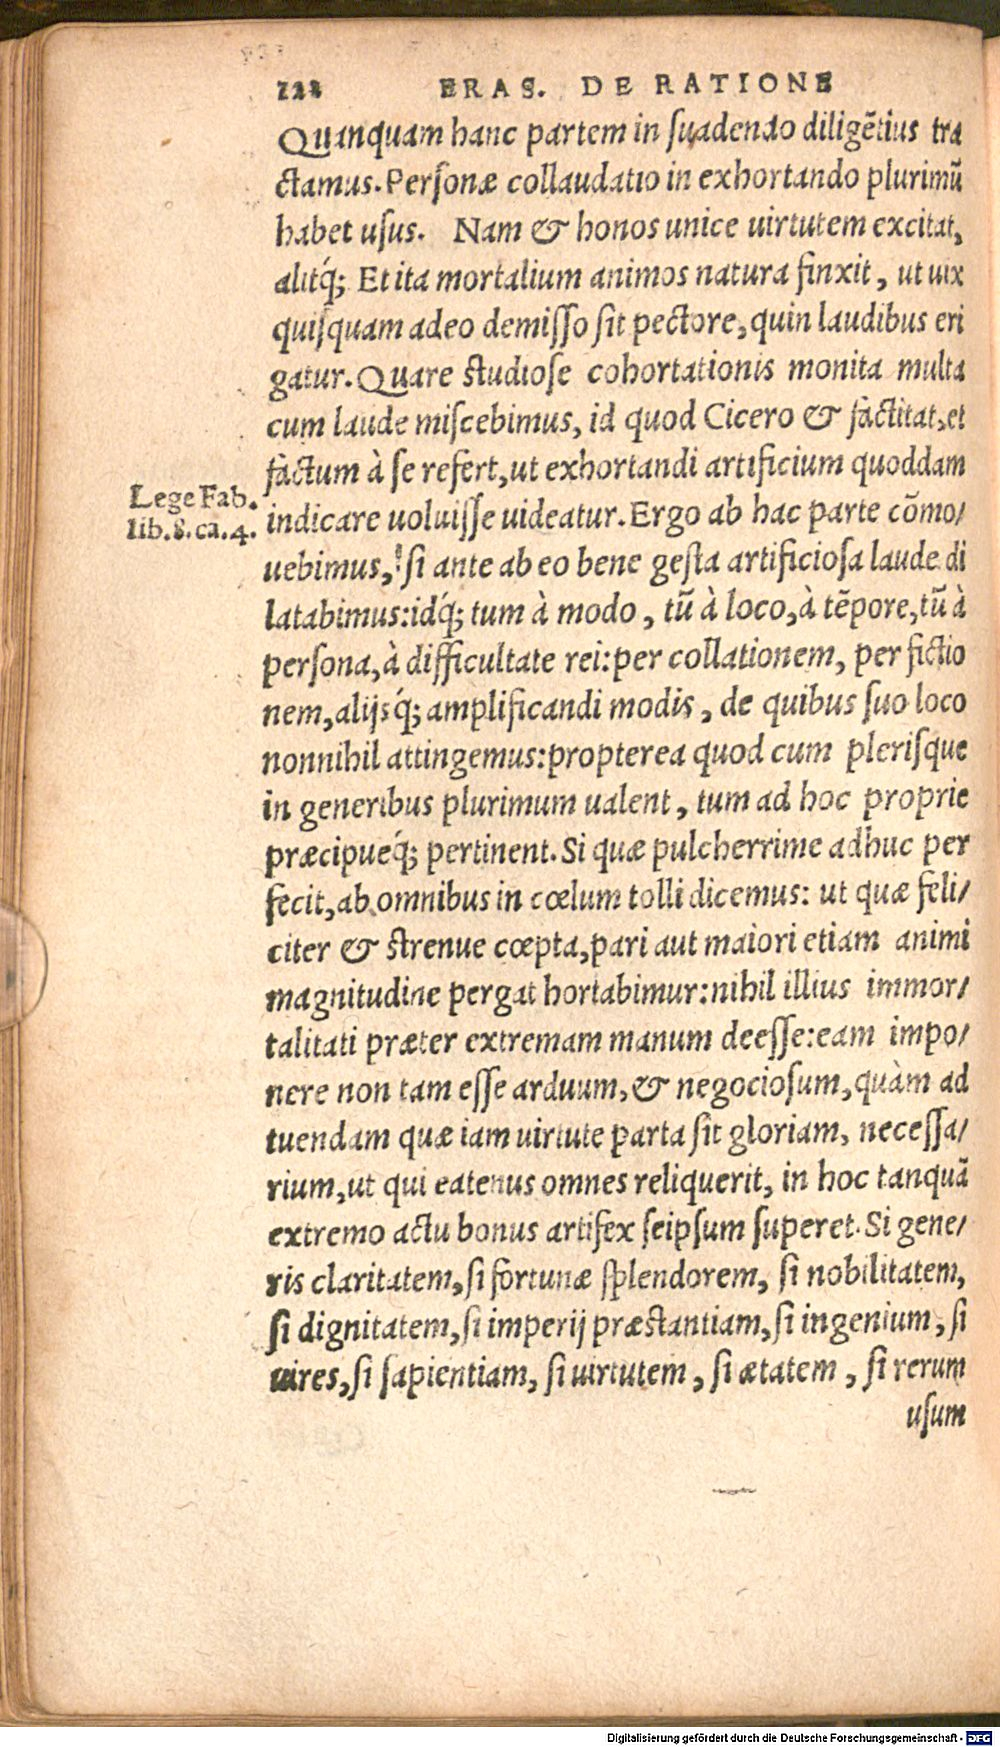 122 ERAS. DE RATIONE
Quanquam hanc partem in suadendo diligẽtius tra
ctamus. Personæ collaudatio in exhortando plurimũ
habet usus. Nam & honos unice uirtutem excitat,
alitq́; Et ita mortalium animos natura finxit, ut uix
quisquam adeo demisso sit pectore, quin laudibus eri
gatur. Quare studiose cohortationis monita multa
cum laude miscebimus, id quod Cicero & factitat, et
factum à se refert, ut exhortandi artificium quoddam
Lege Fab.
lib.8.ca.4.
indicare uoluisse uideatur. Ergo ab hac parte cõmo/
uebimus, si ante ab eo bene gesta artificiosa laude di
latabimus: idq́; tum à modo, tũ à loco, à tẽpore, tũ à
persona, à difficultate rei: per collationem, per fictio
nem, alijsq́; amplificandi modis, de quibus suo loco
nonnihil attingemus: propterea quod cum plerisque
in generibus plurimum ualent, tum ad hoc proprie
præcipueq́; pertinent. Si quæ pulcherrime adhuc per
fecit, ab omnibus in cœlum tolli dicemus: ut quæ feli/
citer & strenue cœpta, pari aut maiori etiam animi
magnitudine pergat hortabimur: nihil illius immor/
talitati præter extremam manum deesse: eam impo/
nere non tam esse arduum, & negociosum, quàm ad
tuendam quæ iam uirtute parta sit gloriam, necessa/
rium, ut qui eatenus omnes reliquerit, in hoc tanquã
extremo actu bonus artifex seipsum superet. Si gene/
ris claritatem, si fortunæ splendorem, si nobilitatem,
si dignitatem, si imperij præstantiam, si ingenium, si
uires, si sapientiam, si uirtutem, si ætatem, si rerum
usum
Digitalisierung gefördert durch die Deutsche Forschungsgemeinschaft - DFG